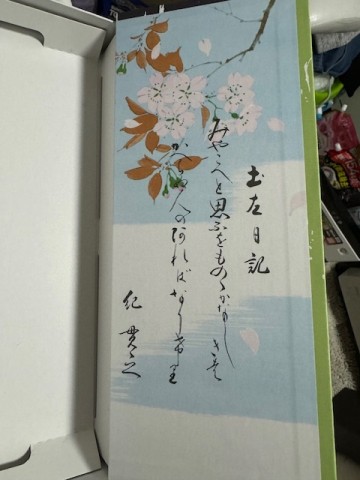 土左日記
みやこへと思ふをものゝかなしきは
かへらぬ人のあればなりけり
紀貫之